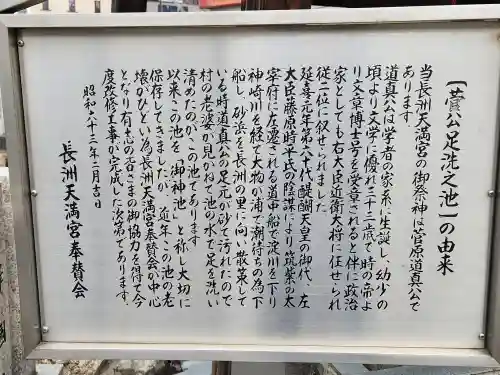 「菅公足洗之池」の由来
当長洲天満宮の御祭神は菅原道真公で
あります。
道真公は学者の家系に生誕し、幼少の
頃より文学に優れ三十三歳で時の帝よ
り文章博士号を受章されると伴に政治
家としても右大臣近衛大将に任せられ
従二位に叙せられました。
延喜元年第六十代醍醐天皇の御代、左
大臣藤原時平氏の陰謀により筑紫の太
宰府に左遷される道中船で淀川を下り
神崎川を経て大物が浦で潮待ちの為下
船し、砂浜を長洲の里に向い散策して
いる時道真公の足元が砂で汚れたので
村の老婆が見かねて池の水で足を洗い
清めたのが、この池であります
以来この池を「御神池」と称し大切に
保存してきましたが、近年この池の老
壊がひどい為長洲天満宮奉賛会の中心
となり有志の皆さまの御協力を得て今
度改修工事が完成した次第であります。
昭和六十三年二月吉日
長洲天満宮奉賛会